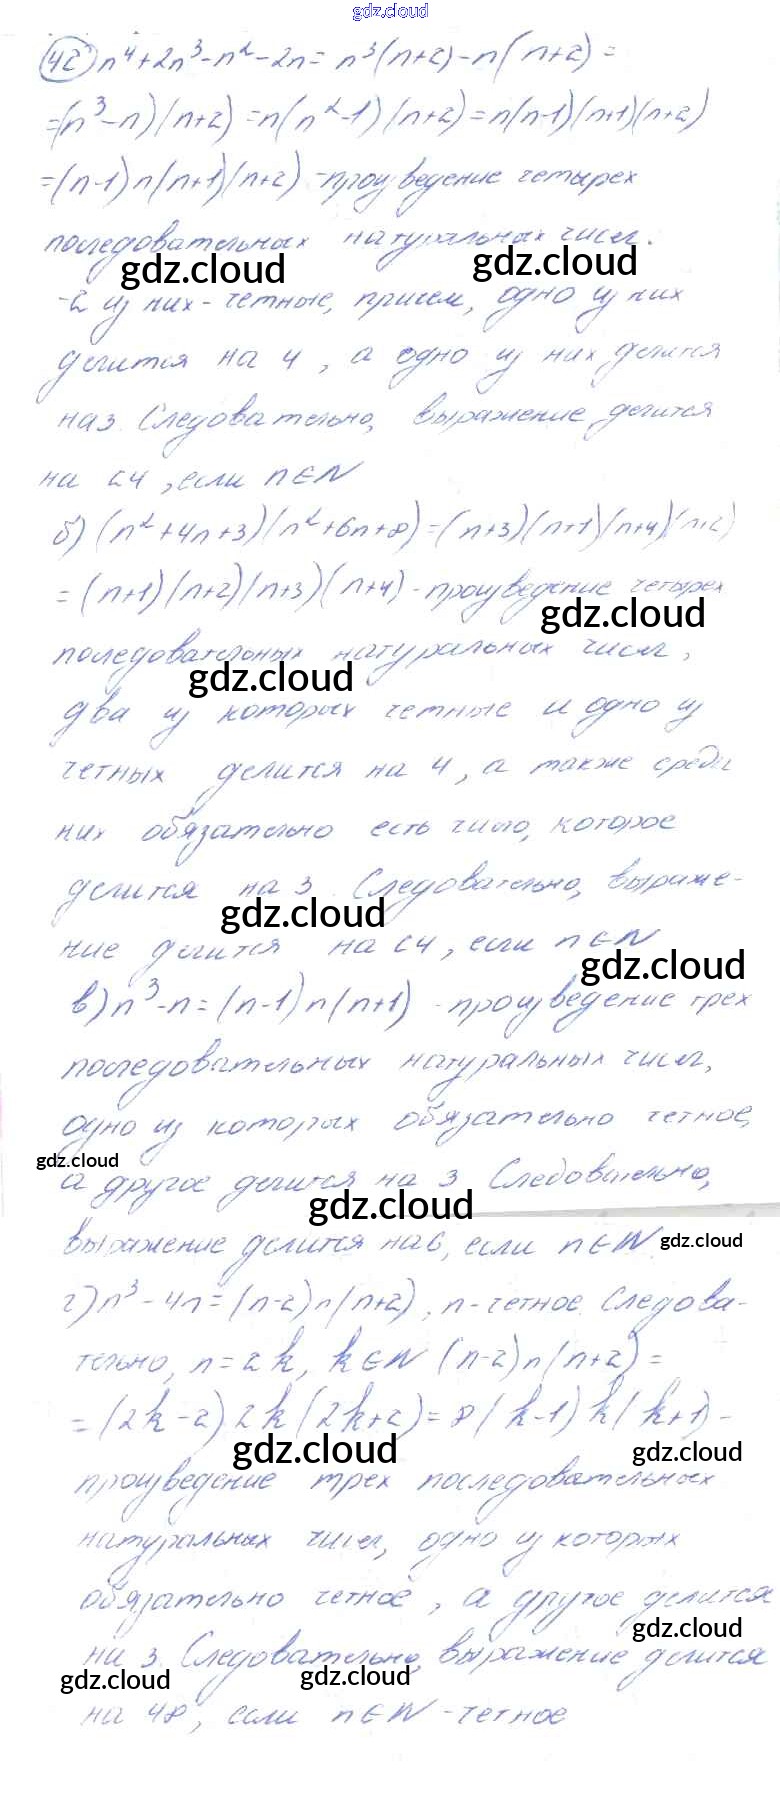 gdz.cloud
42) n⁴+2n³-n²-2n= n³(n+2)-n(n+2)=
=(n³-n)(n+2)=n(n²-1)(n+2)=n(n-1)(n+1)(n+2)
=(n-1)n(n+1)(n+2)-произведение четырех
последовательных натуральных чисел.
gdz.cloud gdz.cloud
-2 из них-четные, причем, одно из них
делится на 4, а одно из них делится
на 3. Следовательно, выражение делится
на 24, если n∈N
б) (n²+4n+3)(n²+6n+8)=(n+3)(n+1)(n+4)(n+2)
=(n+1)(n+2)(n+3)(n+4)-произведение четырех
gdz.cloud
последовательных натуральных чисел,
gdz.cloud
два из которых четные и одно из
четных делится на 4, а также среди
них обязательно есть число, которое
делится на 3. Следовательно, выраже-
gdz.cloud
ние делится на 24, если n∈N
gdz.cloud
в) n³-n=(n-1)n(n+1)-произведение трех
последовательных натуральных чисел,
одно из которых обязательно четное,
gdz.cloud
а другое делится на 3. Следовательно,
gdz.cloud
выражение делится на 6, если n∈N.
gdz.cloud
г) n³-4n=(n-2)n(n+2), n-четное. Следова-
тельно, n=2k, k∈N (n-2)n(n+2)=
=(2k-2)2k(2k+2)=8(k-1)k(k+1)-
gdz.cloud gdz.cloud
произведение трех последовательных
натуральных чисел, одно из которых
обязательно четное, а другое делится
gdz.cloud
на 3. Следовательно, выражение делится
gdz.cloud gdz.cloud
на 48, если n∈N-четное